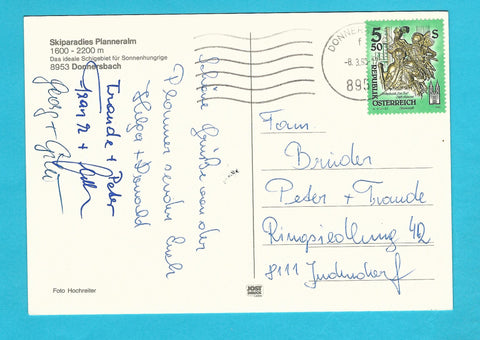 Skiparadies Planneralm
1600 - 2200 m
Das ideale Schigebiet für Sonnenhungrige
8953 Donnersbach
Schöne Grüße von der
Planner senden Euch
Helga + Donald
Traude + Peter
Franz +
Georg +
DONNERS
- 8. 3. 93
895
5 50 S
REPUBLIK
ÖSTERREICH
Fam.
Brüder
Peter + Traude
Ringsiedlung 42
8111 Judendorf
Foto Hochreiter
JOST